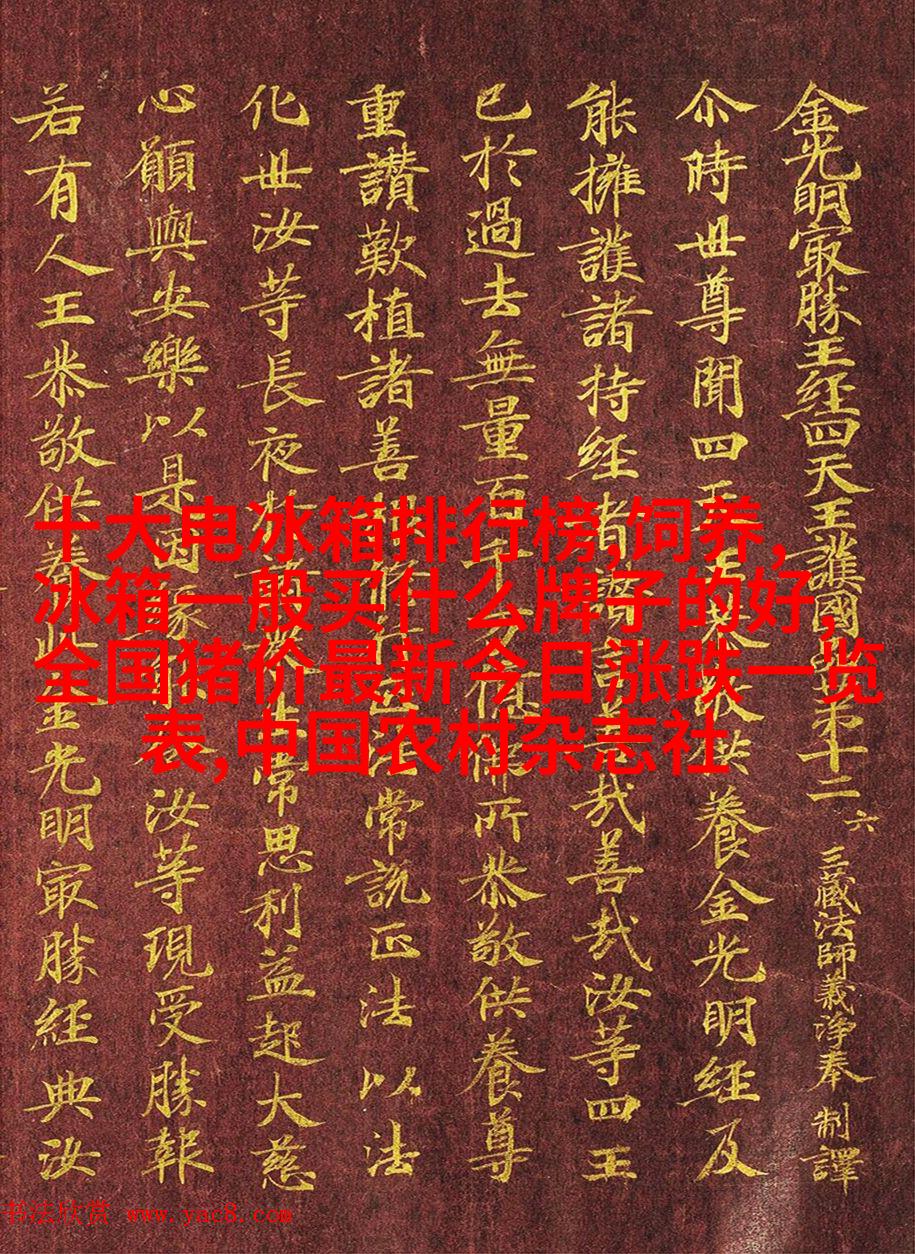 金光明㝡勝王経四天王護國品第十二 六 三藏法師義淨奉 制譯
尒時世尊聞四王
養金光明経及
能擁護諸持经者
善哉汝等四王
已於過去無量百千
所恭敬供養尊
重讃歎植諸善
常説正法以法
化世汝等長夜
常思利益起大慈
心願與安樂以是因
汝等現受勝報
若有人王恭敬供養此金光明㝡勝経典汝
十大电冰箱排行榜,饲养,
冰箱一般买什么牌子的好,
全国猪价最新今日涨跌一览
表,中国农村杂志社
书法欣赏 www.yac8.com